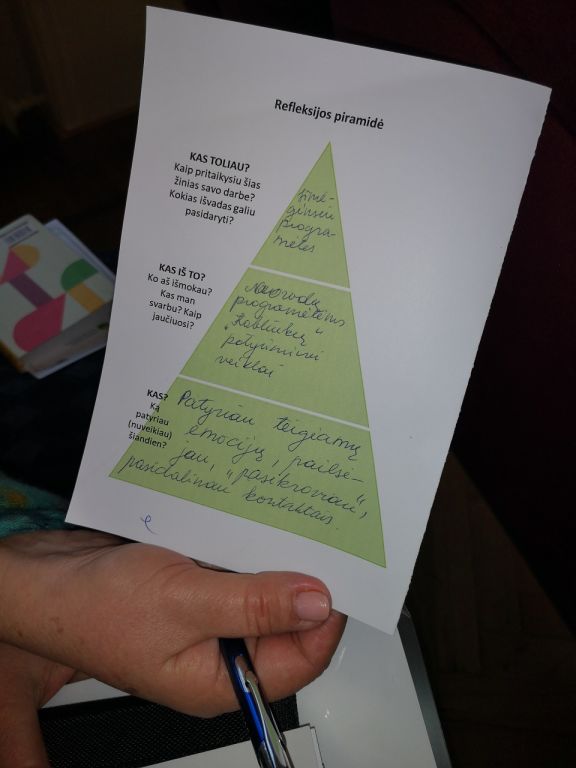 Refleksijos piramidė
KAS TOLIAU?
Kaip pritaikysiu šias
žinias savo darbe?
Kokias išvadas galiu
pasidaryti?
Išmė-
ginsiu
progra-
mėles
KAS IŠ TO?
Ko aš išmokau?
Kas man
svarbu? Kaip
jaučiuosi?
Nuorodų
programėlėms
patyriminei
veiklai
KAS?
Ką
patyriau
(nuveikiau)
šiandien?
Patyriau teigiamų
emocijų, pailsė-
jau, "pasikroviau",
pasidalinau kontaktais.